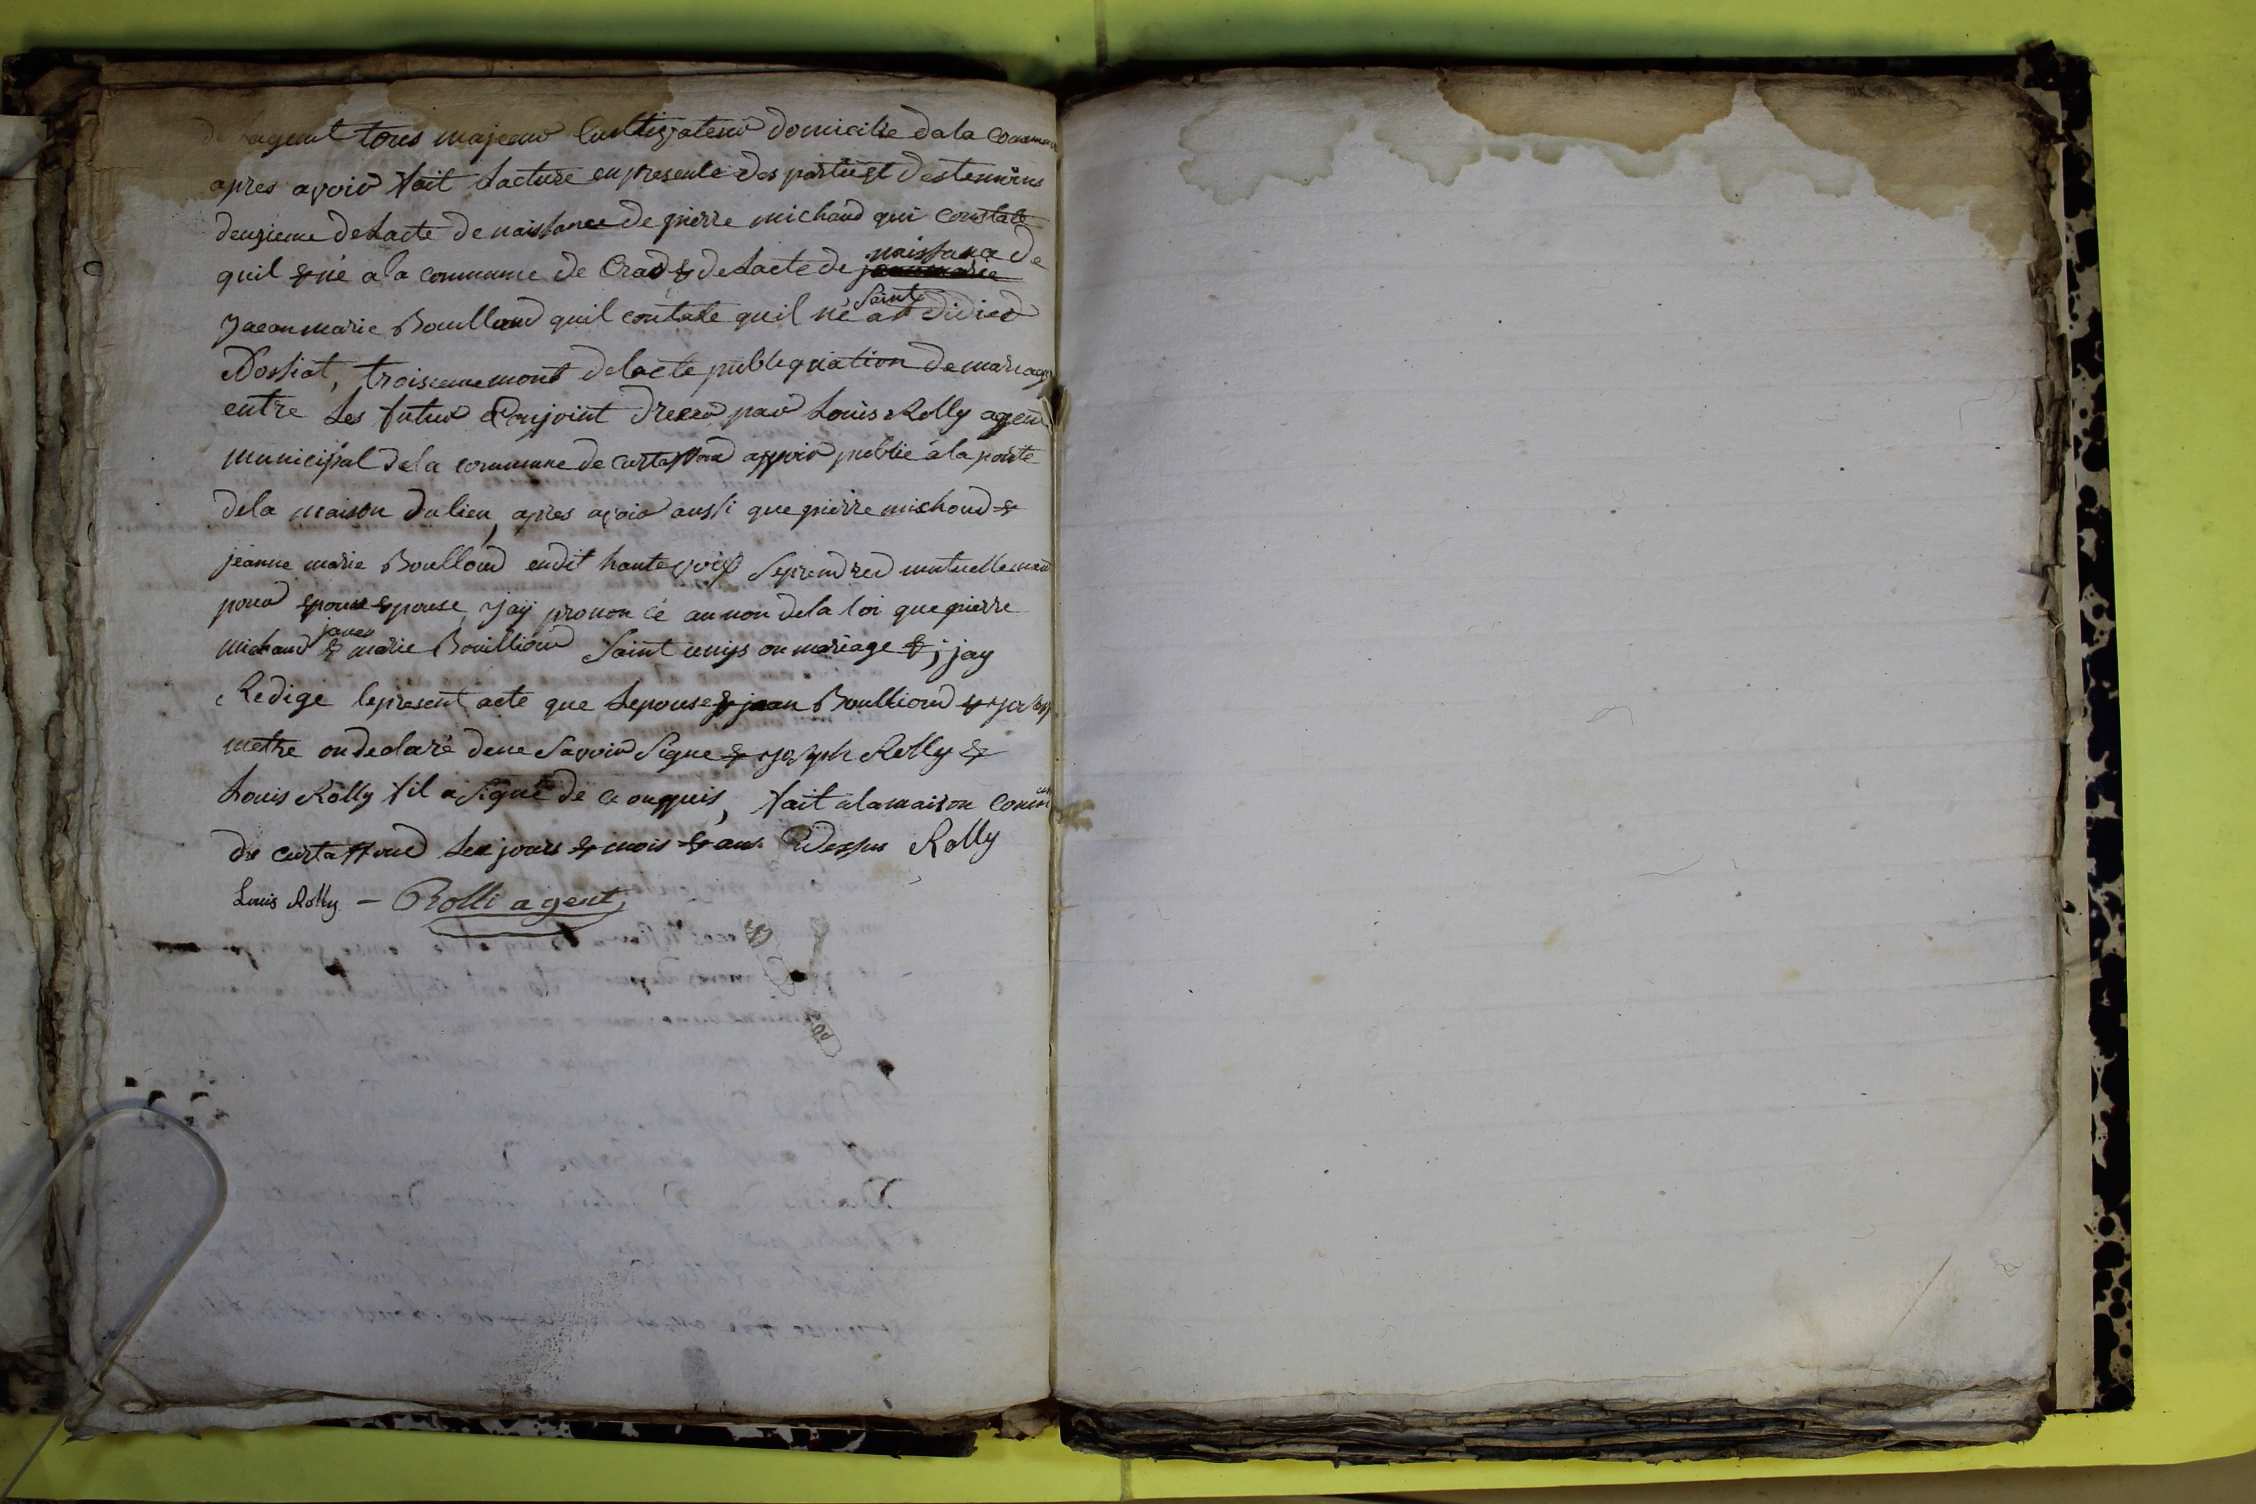 de lagent tous majeur Cultivateur domicilie dela Commune
apres avoir fait Lacture en presente des partie et destemoins
deuzieme deLacte de naissance de pierre michaud qui constate
quil & né a la commune de Cras & deLacte de naissance de
Jaean marie Boulloud quil contate quil né a Saint didier
Dossiat, troisiemement delacte publiquation demariage
entre Les futur Conjoint drecer par Louis Rolly agent
municipal dela commune de curtaffond appres publié à la porte
dela maison du lieu, apres avoir aussi que pierre michoud &
jeanne marie Boulloud endit haute voix seprendrer mutuellemant
pour epoux epouse, jay prononcé au non dela loi que pierre
michaud & janes marie Bouilloud Saint unips on mariage &, jay
Redige lepresent acte que Lepouse & jean Boulloud &
metre on declaré dene Savoir Signe & joseph Rolly &
Louis Rolly fil a Signé de ce onquis, fait à lamaison comune
de curtaffond Les jours & mois & ans Cidessus Rolly
Louis Rolly — Rolli agent